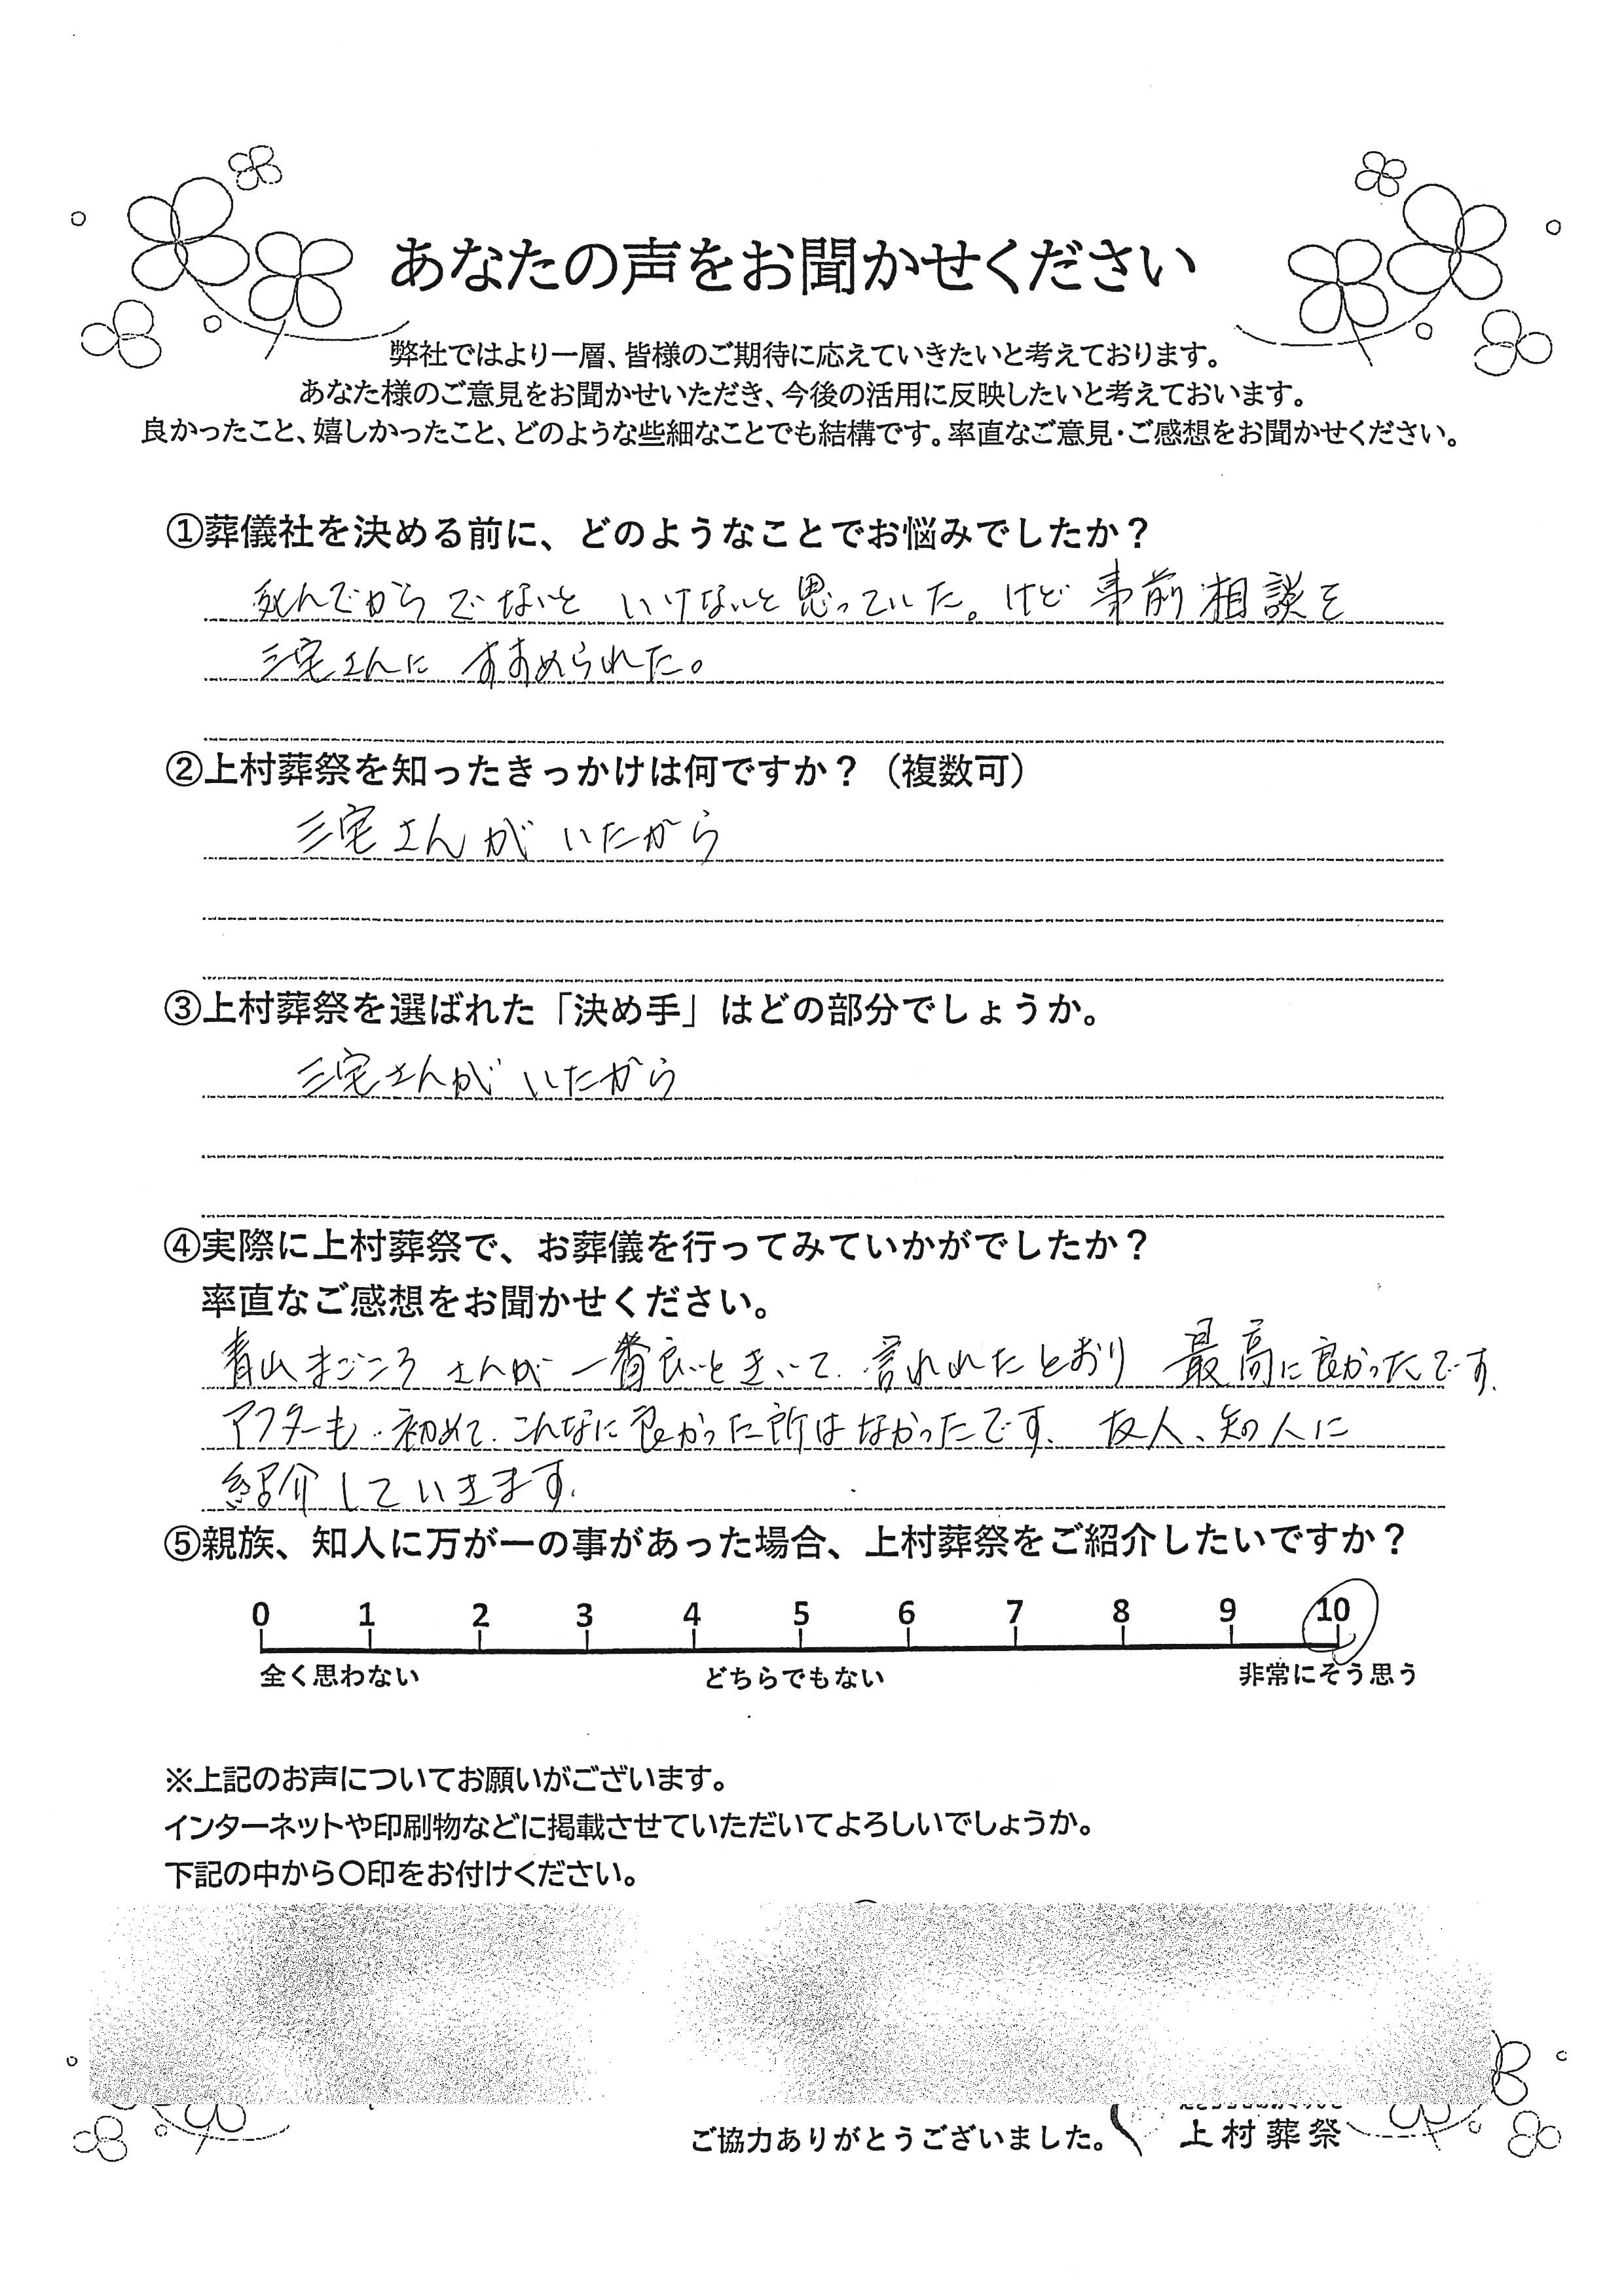 あなたの声をお聞かせください
弊社ではより一層、皆様のご期待に応えていきたいと考えております。
あなた様のご意見をお聞かせいただき、今後の活用に反映したいと考えておいます。
良かったこと、嬉しかったこと、どのような些細なことでも結構です。率直なご意見・ご感想をお聞かせください。
①葬儀社を決める前に、どのようなことでお悩みでしたか？
死んでからでないと いけないと思っていた。けど 事前相談を
三宅さんに すすめられた。
②上村葬祭を知ったきっかけは何ですか？（複数可）
三宅さんが いたから
③上村葬祭を選ばれた「決め手」はどの部分でしょうか。
三宅さんが いたから
④実際に上村葬祭で、お葬儀を行ってみていかがでしたか？
率直なご感想をお聞かせください。
青山まごころ さんが 一番良いときいて、言われたとおり 最高に良かったです。
アフターも、初めて、こんなに良かった所はなかったです。友人、知人に
紹介していきます。
⑤親族、知人に万が一の事があった場合、上村葬祭をご紹介したいですか？
0 1 2 3 4 5 6 7 8 9 10
全く思わない どちらでもない 非常にそう思う
※上記のお声についてお願いがございます。
インターネットや印刷物などに掲載させていただいてよろしいでしょうか。
下記の中から〇印をお付けください。
ご協力ありがとうございました。 上村葬祭